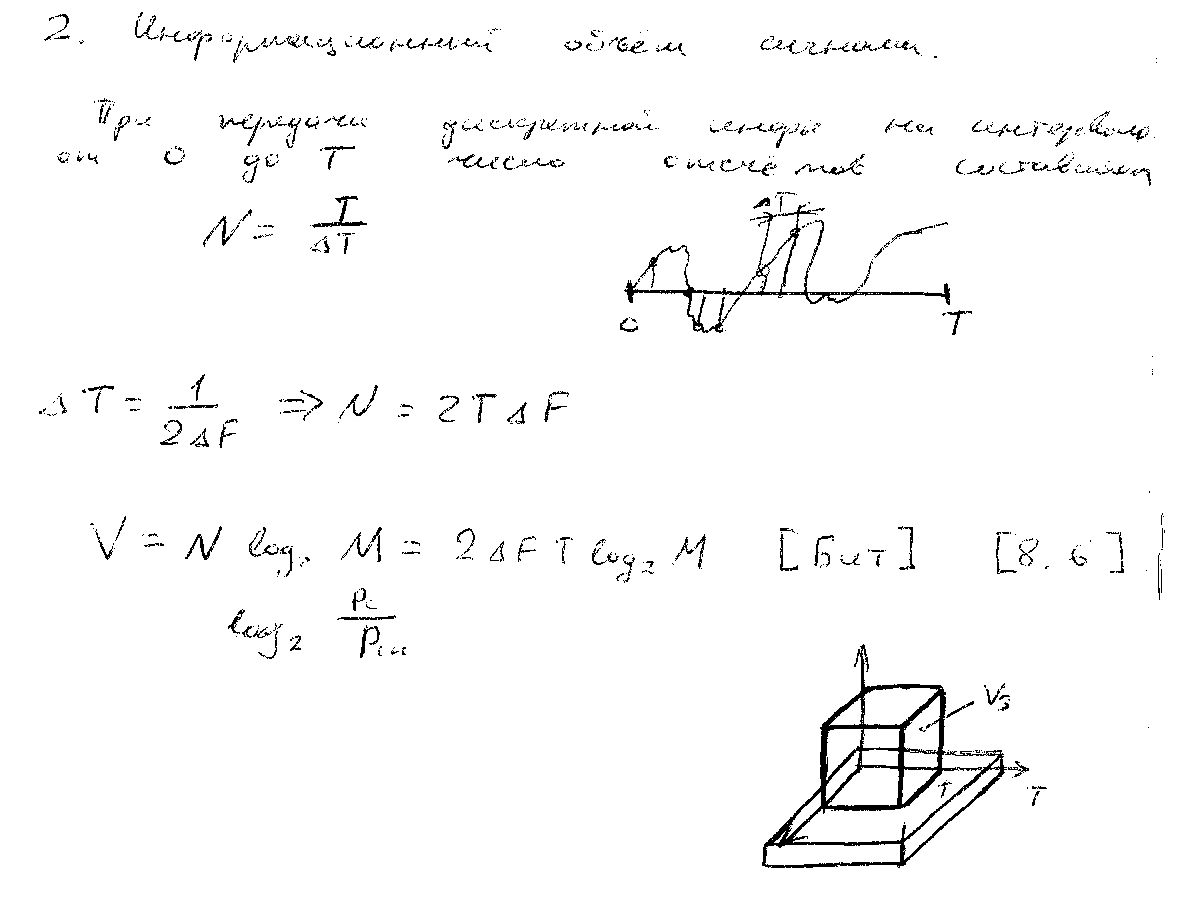 2. Информационный объём сигнала.
При передачи дискретной информ на интервале
от 0 до T число отсчётов составляет
N = T/ΔT
ΔT
0 T
ΔT = 1/2ΔF ⇒ N = 2TΔF
V = N log₂ M = 2ΔF T log₂ M [Бит] [8.6]
log₂ Pc/Pш
Vs
T
T